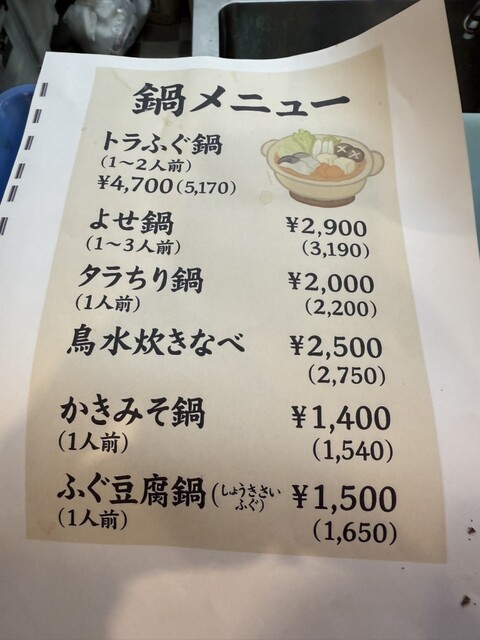 鍋メニュー
トラふぐ鍋
(1〜2人前)
¥4,700(5,170)
よせ鍋 ¥2,900
(1〜3人前) (3,190)
タラちり鍋 ¥2,000
(1人前) (2,200)
鳥水炊きなべ ¥2,500
(2,750)
かきみそ鍋 ¥1,400
(1人前) (1,540)
ふぐ豆腐鍋(しょうさいふぐ) ¥1,500
(1人前) (1,650)